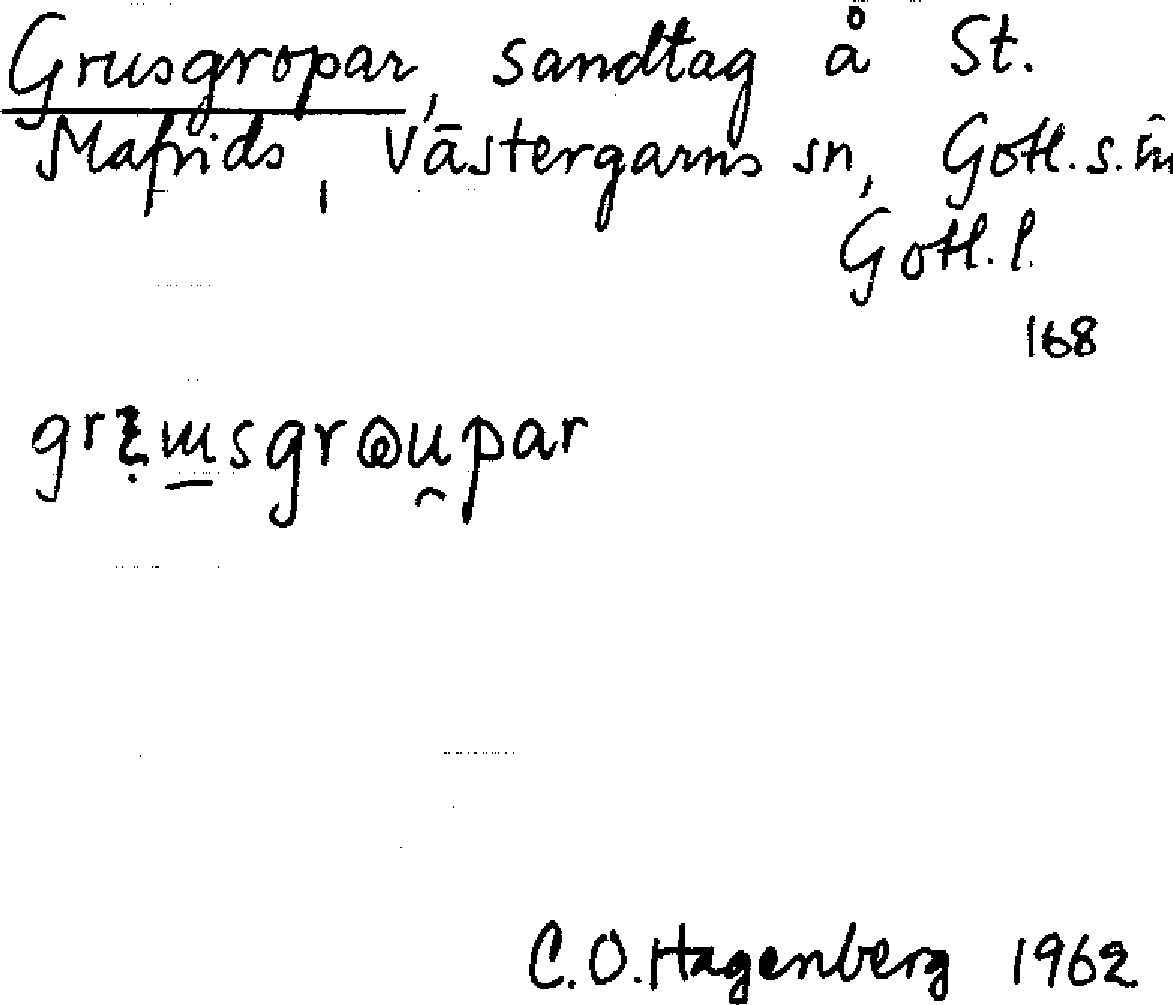 Grusgropar, sandtag å St.
Mafrids, Västergarns sn, Gotl.s.hd
Gotl.l.
168
C.O.Hagenberg 1962